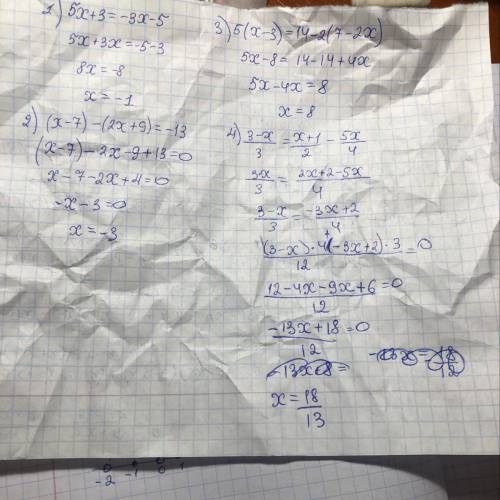 1) 5x+3=-3x-5
5x+3x=-5-3
8x=-8
x=-1
2) (x-7)-(2x+9)=-13
(x-7)-2x-9+13=0
x-7-2x+4=0
-x-3=0
x=-3
3) 5(x-3)=14-2(7-2x)
5x-8=14-14+4x
5x-4x=8
x=8
4) (3-x)/3=(x+1)/2-5x/4
(3-x)/3=(2x+2-5x)/4
(3-x)/3=(-3x+2)/4
((3-x)·4(-3x+2)·3)/12=0
(12-4x-9x+6)/12=0
(-13x+18)/12=0
x=18/13
-2 -1 0 1